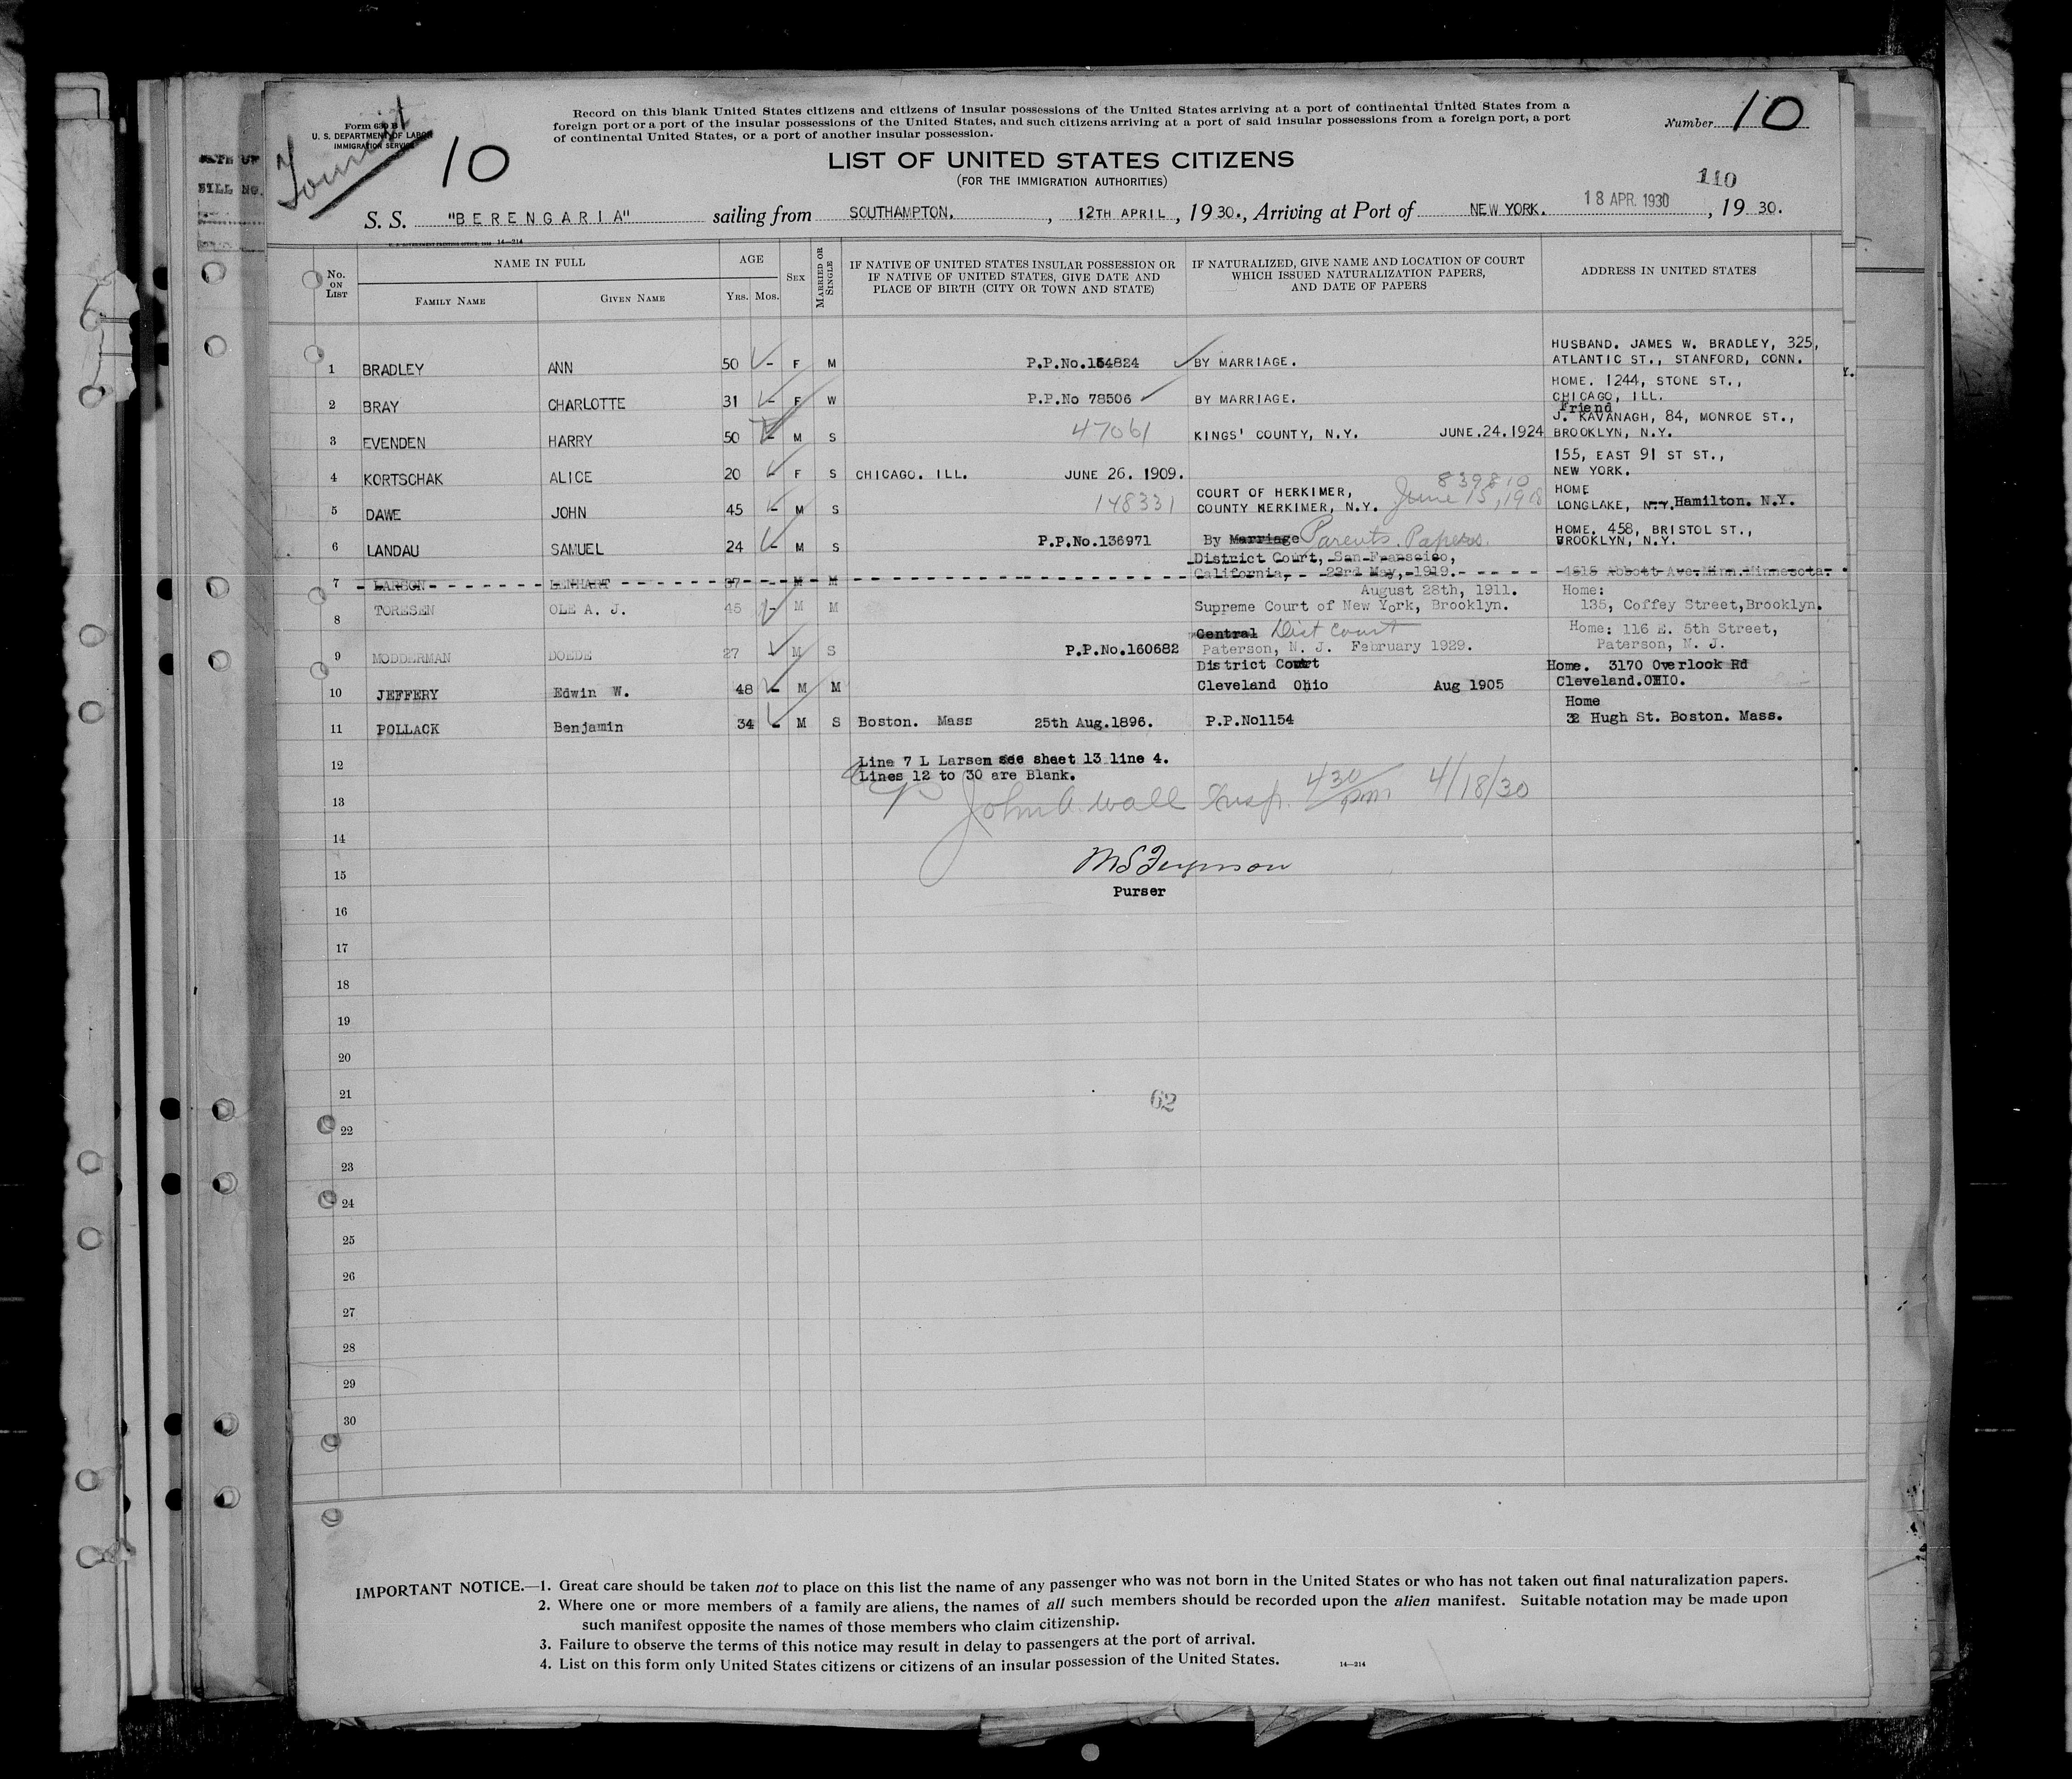 Tourist
Form 630 B
U. S. DEPARTMENT OF LABOR
IMMIGRATION SERVICE
10
Record on this blank United States citizens and citizens of insular possessions of the United States arriving at a port of continental United States from a
foreign port or a port of the insular possessions of the United States, and such citizens arriving at a port of said insular possessions from a foreign port, a port
of continental United States, or a port of another insular possession.
Number 10
LIST OF UNITED STATES CITIZENS
(FOR THE IMMIGRATION AUTHORITIES)
110
S. S. "BERENGARIA" sailing from SOUTHAMPTON. , 12TH APRIL , 19 30., Arriving at Port of NEW YORK. 18 APR. 1930 , 19 30.
14—214
No. ON LIST
NAME IN FULL
FAMILY NAME
GIVEN NAME
AGE
YRS. MOS.
SEX
MARRIED OR SINGLE
IF NATIVE OF UNITED STATES INSULAR POSSESSION OR
IF NATIVE OF UNITED STATES, GIVE DATE AND
PLACE OF BIRTH (CITY OR TOWN AND STATE)
IF NATURALIZED, GIVE NAME AND LOCATION OF COURT
WHICH ISSUED NATURALIZATION PAPERS,
AND DATE OF PAPERS
ADDRESS IN UNITED STATES
HUSBAND. JAMES W. BRADLEY, 325,
1 BRADLEY ANN 50 - F M P.P.No.154824 BY MARRIAGE. ATLANTIC ST., STANFORD, CONN.
HOME. 1244, STONE ST.,
2 BRAY CHARLOTTE 31 - F W P.P.No 78506 BY MARRIAGE. CHICAGO, ILL.
Friend
J. KAVANAGH, 84, MONROE ST.,
3 EVENDEN HARRY 50 - M S 47061 KINGS' COUNTY, N.Y. JUNE.24.1924 BROOKLYN, N.Y.
155, EAST 91 ST ST.,
4 KORTSCHAK ALICE 20 - F S CHICAGO. ILL. JUNE 26. 1909. NEW YORK.
839810
COURT OF HERKIMER, June 15, 1918 HOME
5 DAWE JOHN 45 - M S 148331 COUNTY HERKIMER, N.Y. LONGLAKE, N.Y. Hamilton. N.Y.
HOME. 458, BRISTOL ST.,
6 LANDAU SAMUEL 24 - M S P.P.No.136971 By Marriage Parents. Papers. BROOKLYN, N.Y.
District Court, San Franscico,
7 LARSON LENHART 37 - M M California, 23rd May, 1919. 4618 Abbott Ave.Minn.Minnesota.
August 28th, 1911. Home:
8 TORESEN OLE A. J. 45 - M M Supreme Court of New York, Brooklyn. 135, Coffey Street,Brooklyn.
Central Dist Court Home: 116 E. 5th Street,
9 MODDERMAN DOEDE 27 M S P.P.No.160682 Paterson, N. J. February 1929. Paterson, N. J.
District Court Home. 3170 Overlook Rd
10 JEFFERY Edwin W. 48 - M M Cleveland Ohio Aug 1905 Cleveland.OHIO.
Home
11 POLLACK Benjamin 34 - M S Boston. Mass 25th Aug.1896. P.P.No1154 32 Hugh St. Boston. Mass.
12 Line 7 L Larsen see sheet 13 line 4.
Lines 12 to 30 are Blank.
13 John A. Wall Insp. 430 pm 4/18/30
14
15 Purser
16
17
18
19
20
21
62
22
23
24
25
26
27
28
29
30
IMPORTANT NOTICE.—1. Great care should be taken not to place on this list the name of any passenger who was not born in the United States or who has not taken out final naturalization papers.
2. Where one or more members of a family are aliens, the names of all such members should be recorded upon the alien manifest. Suitable notation may be made upon
such manifest opposite the names of those members who claim citizenship.
3. Failure to observe the terms of this notice may result in delay to passengers at the port of arrival.
4. List on this form only United States citizens or citizens of an insular possession of the United States. 14—214